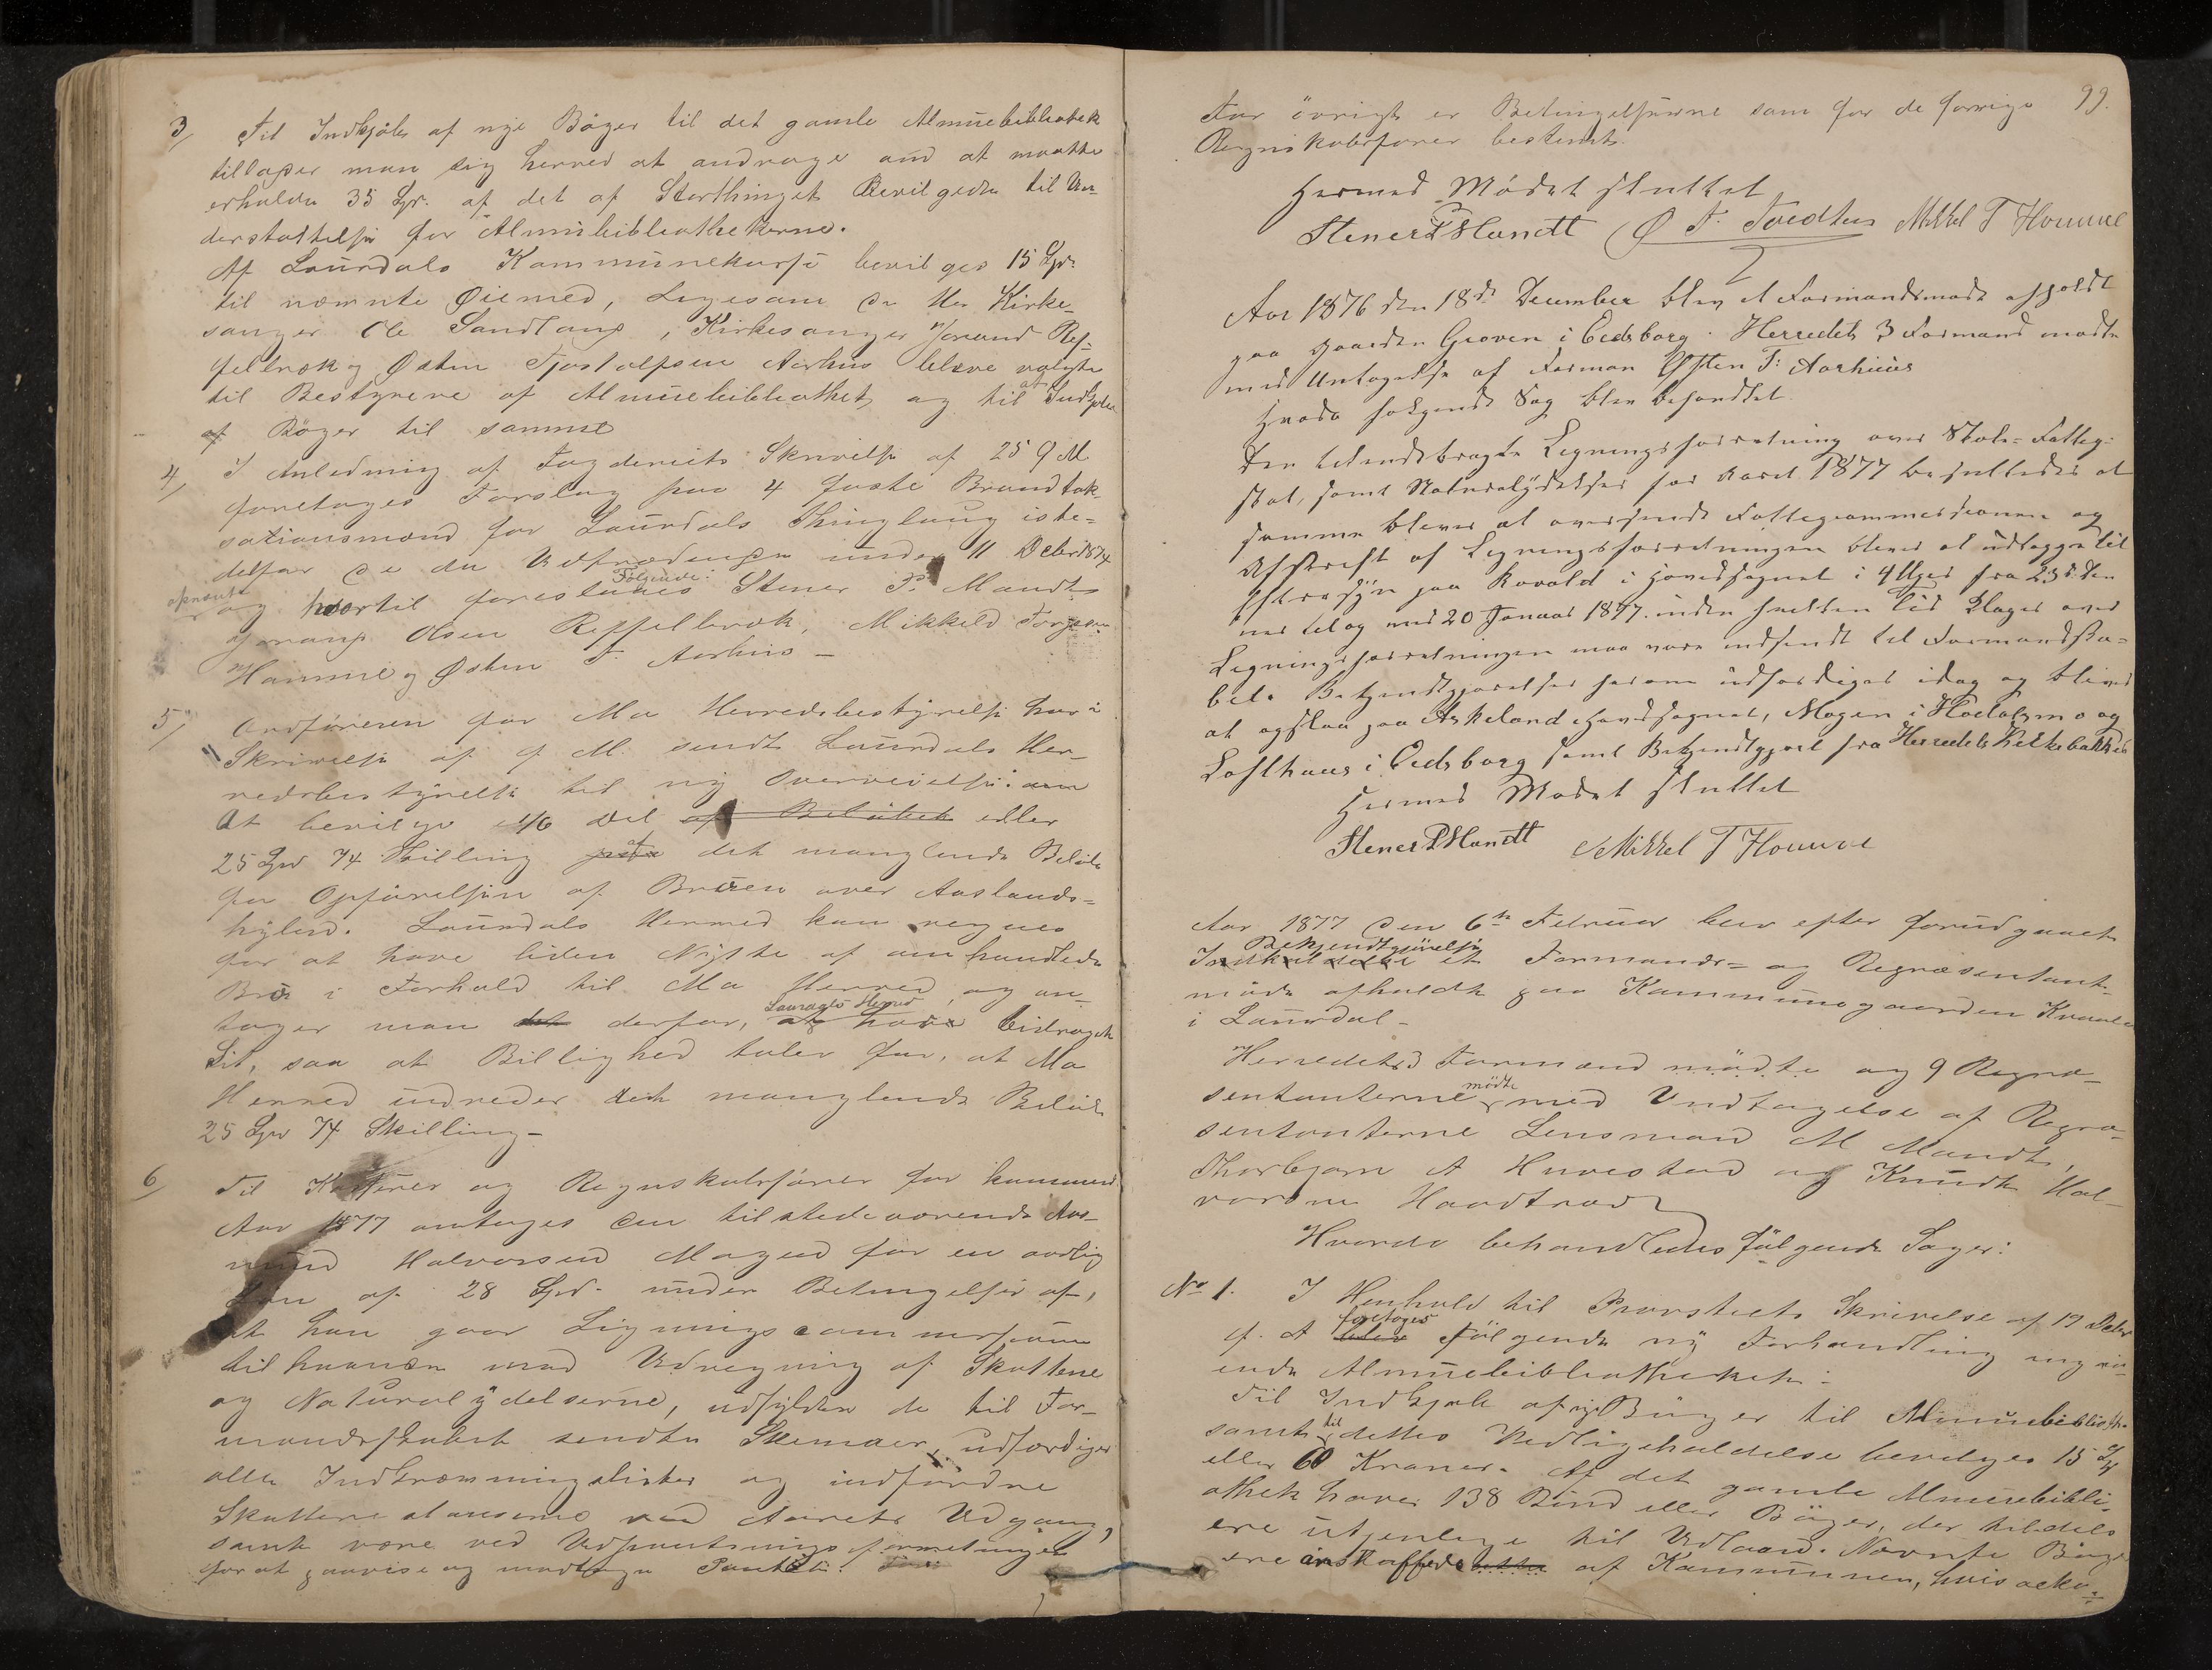 3/ Til Indkjøb af nye Bøger til det gamle Almuebibliotek
tillader man sig herved at andrage om at maatte
erholde 35 Spr. af det af Storthinget Bevilgede til Un-
derstøttelse for Almuebibliothekerne.
Af Laurdals Kommunekasse bevilges 15 Spr.
til nævnte Øiemed, Ligesom de Hrr Kirke-
sanger Ole Sandland, Kirkesanger
og Østen Tjostolfsen Aarhus bleve valgte
til Bestyrere af Almuebibliothek og til at Indkjøbe
af Bøger til samme
4/ I Anledning af Fogderiets Skrivelse af 25 9 M
foretages Forslag paa 4 faste Brandtak-
sationsmænd for Laurdals Thinglaug iste-
detfor de i du under 11 Debr 1874
opnævnte og hvortil foreslaaes Følgende: Stener P. Mandt
Olsen Mikkel Torjesen
Homme og Østen T. Aarhus -
5/ Ordføreren for Mo Herredsbestyrelse har i
Skrivelse af 9 M. sendt Laurdals Her-
redsbestyrelse til ny Overveielse: om
At bevilge 1/6 Del af Beløbet eller
25 Spr 74 Skilling af det manglende Beløb
for Opførelsen af Broen over Aaslands-
hylen. Laurdals Herred kan regnes
for at have liden Nytte af omhandlede
Bro i Forhold til Mo Herred, og an-
tager man det derfor, at Laurdals Herred have bidraget
Sit, saa at Billighed taler for, at Mo
Herred udreder det manglende Beløb
25 Spr 74 Skilling -
6/ Til Kasserer og Regnskabsfører for kommende
Aar 1877 antages den tilstedeværende Aas-
mund Halvorsen Mogen for en aarlig
Løn af 28 Spd. under Betingelse af,
at han gaar Ligningscommissionen
tilhaande med Udregning af Skattene
og Naturalydelserne, udfylder de til For-
mandskabet sendte Skemaer, udfærdiger
alle Indkrævningslister og indfordre
Skatterestancerne ved Aarets Udgang,
samt være ved Udpantningsforretninger
for at paavise og modtage Pantet. For
99.
For øvrigt er Betingelserne som for de forrige
Regnskabsfører bestemt.
Hermed Mødet sluttet
Stener P Mandt Ø T. Mikkel T Homme
Aar 1876 den 18de December blev et Formandsmøde afholdt
paa Gaarden Groven i Eidsborg. Herredets 3 Formænd mødte
med Untagelse af Forman Østen T. Aarhuus
Hvoda følgende Sag blev behandlet.
Den tilendebragte Ligningsforretning over Skole- Fatteg-
skat, samt Naturalydelser for Aaret 1877 besluttedes at
samme bliver at oversende Fattigcommissionen og
Afskrift af Ligningsforretningen bliver at udlægge til
Eftersyn paa Kovald i Hovedsognet i 4 Uger fra 23de den
nes til og med 20 Januar 1877. inden hvilken Tid Klager over
Ligningsforretningen maa være indsendt til Formandska-
bet. Bekjendtgjørelser herom udfærdiges idag og bliver
at opslaa paa Askeland Hovedsognet, Mogen i Høidalsmo og
Lofthuus i Eidsborg samt Bekjendtgjort fra Herredets Kirkebakker
Hermed Mødet sluttet
Stener P Mandt Mikkel T Homme
Aar 1877 den 6te Februar blev efter forudgaaet
Bekjendtgjørelse et Formands- og Repræsentant-
møde afholdt paa Kommunegaarden Kvaale
i Laurdal -
Herredets 3 Formænd mødte og 9 Repræ-
sentanterne mødte med Undtagelse af Repræ-
sentanterne Lensmand M Mandt,
Thorbjørn A Huvestad og Knudt Hal-
vorsen Haadtrod
Hvorda behandledes følgende Sager:
No 1. I Henhold til Provstiets Skrivelse af 19 Debr
f. A foretages følgende ny Forhandling angaa-
ende Almuebibliotheket:
Til Indkjøb af nye Bøger til Almuebiblioth.
samt til dettes Vedligeholdelse bevilges 15 Spr
eller 60 Kroner. Af det gamle Almuebibli-
othek haves 138 Bind eller Bøger, der tildels
ere utjenlige til Udlaan. Nævnte Bøger
ere anskaffede af Kommunen, hvis øko-